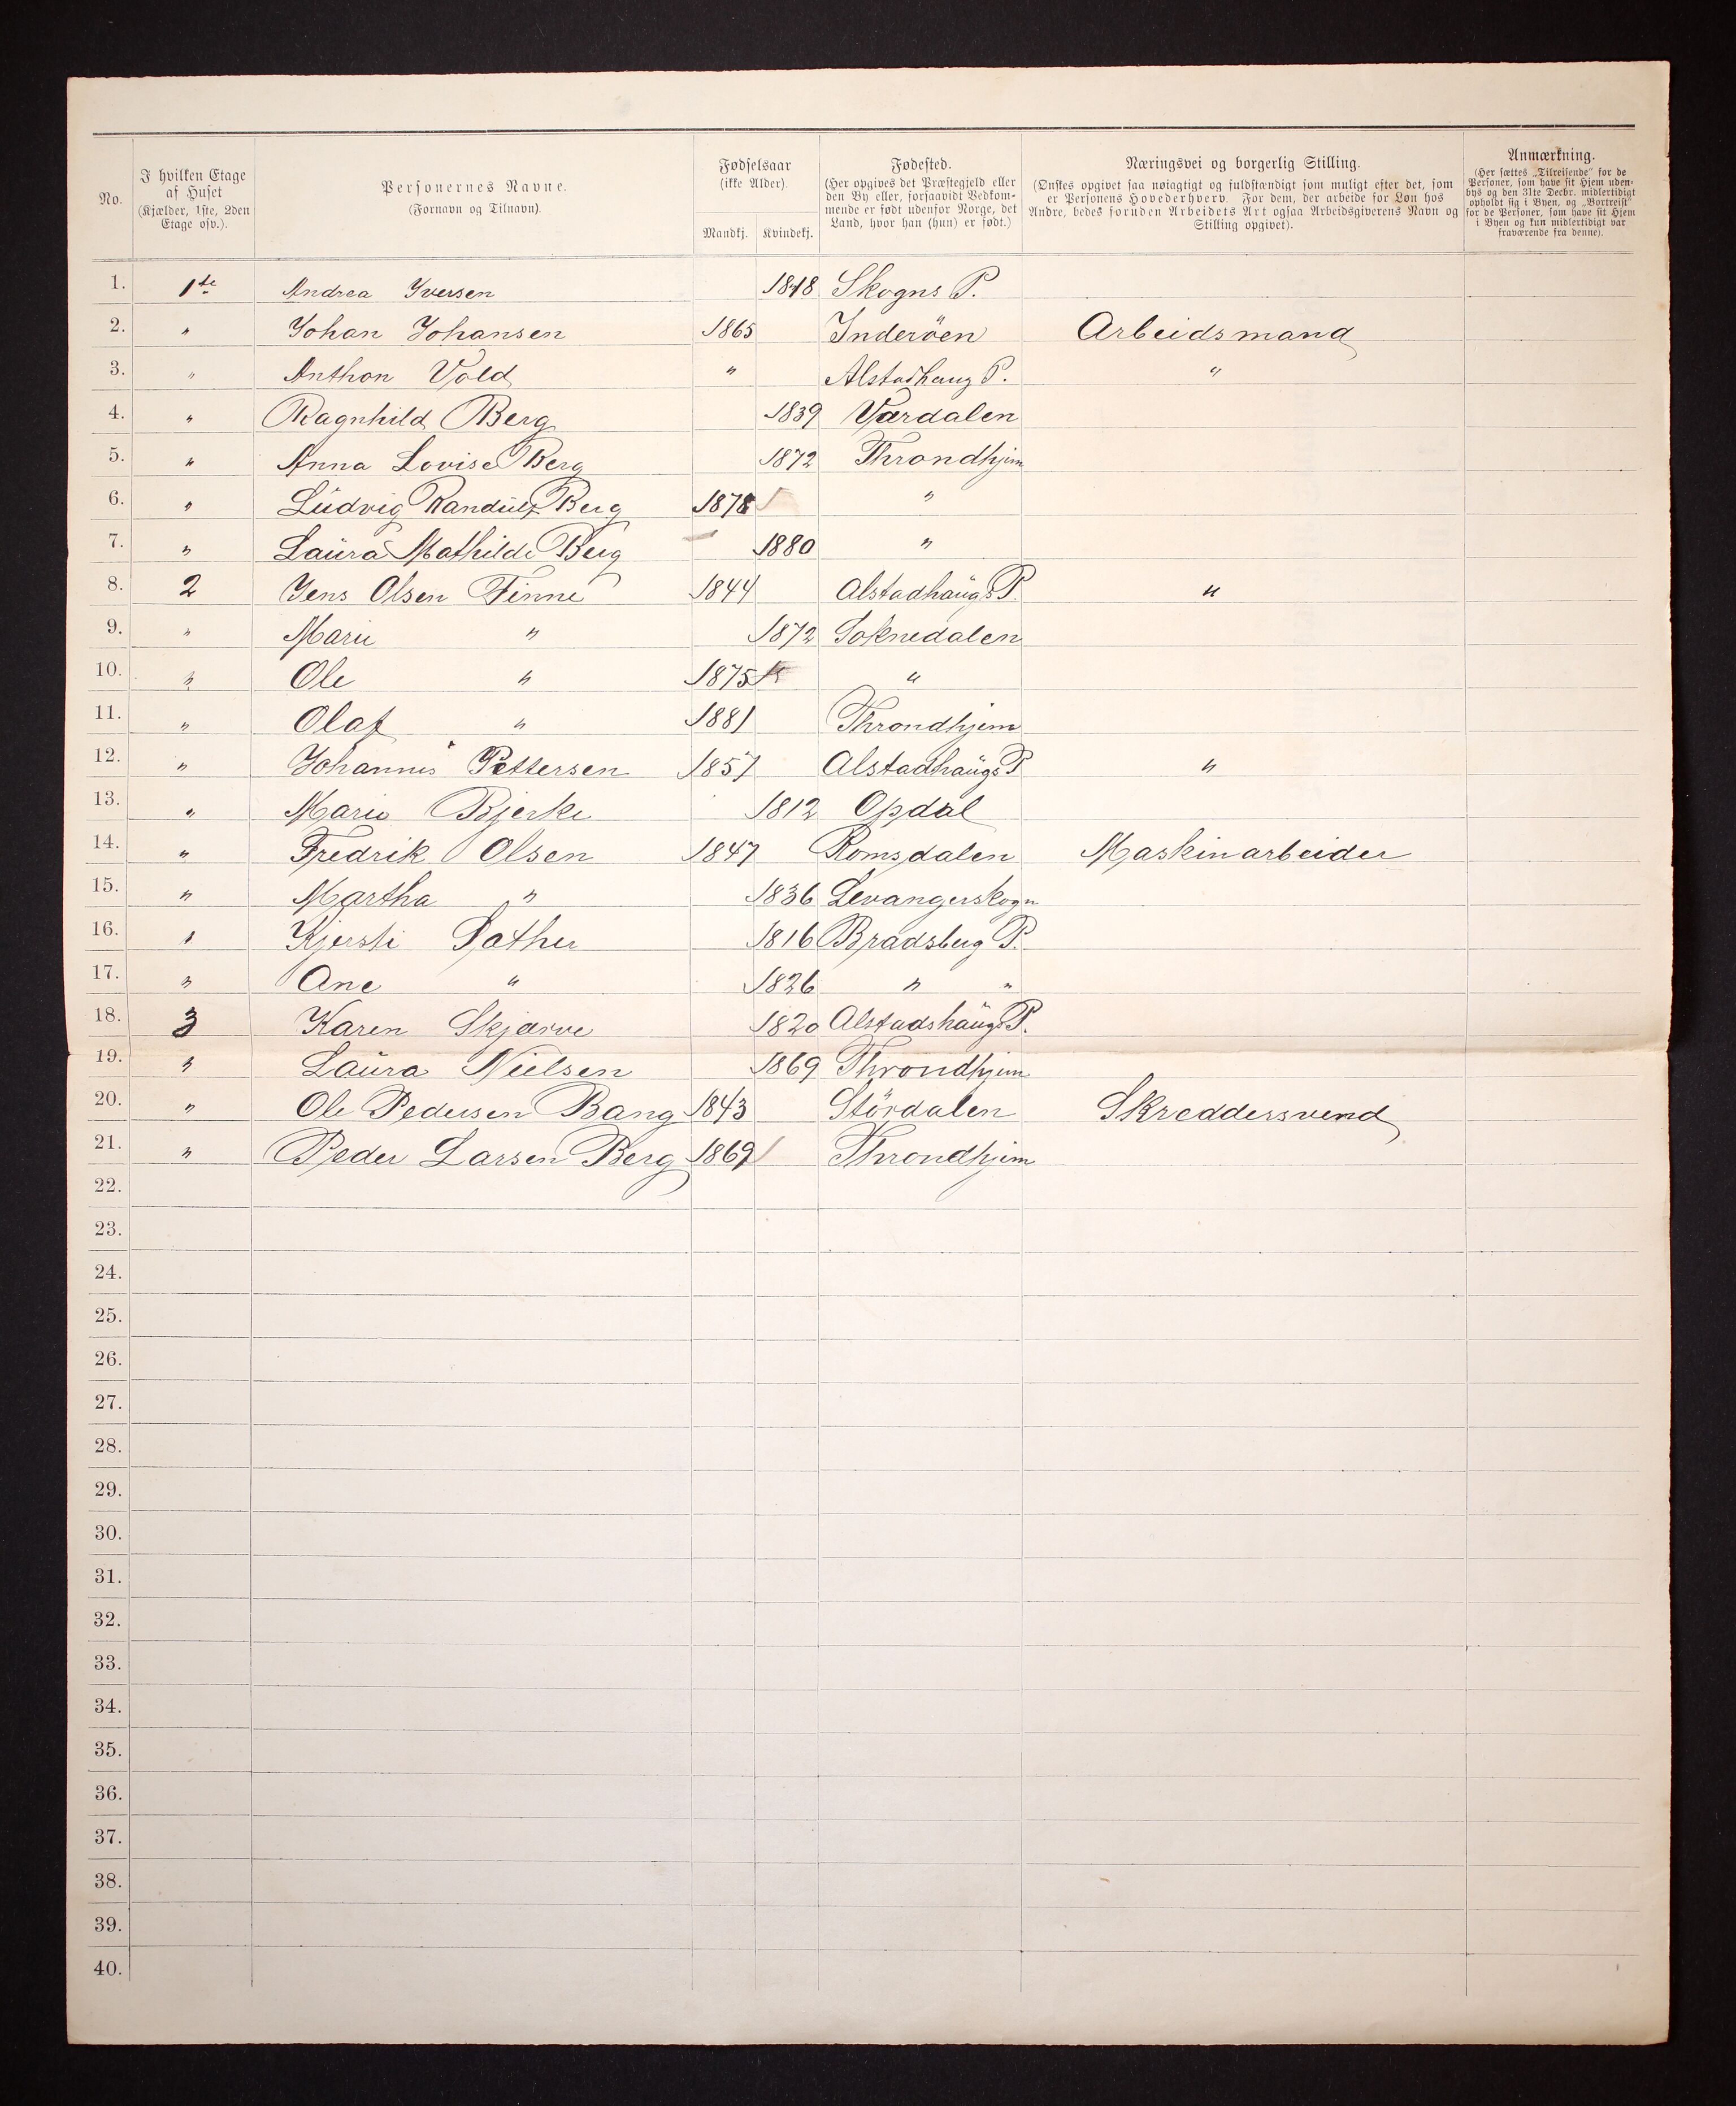 No.
I hvilken Etage af Huset (Kjælder, 1ste, 2den Etage osv.).
Personernes Navne. (Fornavn og Tilnavn).
Fødselsaar (ikke Alder).
Mandkj. Kvindekj.
Fødested. (Her opgives det Præstegjeld eller den By eller, forsaavidt Vedkommende er født udenfor Norge, det Land, hvor han (hun) er født.)
Næringsvei og borgerlig Stilling. (Ønskes opgivet saa nøiagtigt og fuldstændigt som muligt efter det, som er Personens Hovederhverv. For dem, der arbeide for Løn hos Andre, bedes foruden Arbeidets Art ogsaa Arbeidsgiverens Navn og Stilling opgivet).
Anmærkning. (Her sættes „Tilreisende" for de Personer, som have sit Hjem udenbys og den 31te Decbr. midlertidigt opholdt sig i Byen, og „Bortreist" for de Personer, som have sit Hjem i Byen og kun midlertidigt var fraværende fra denne).
1. 1ste Andrea Iversen 1818 Skogns P.
2. " Johan Johansen 1865 Inderöen Arbeidsmand
3. " Anthon Vold " Alstadhaug P. "
4. " Ragnhild Berg 1839 Værdalen
5. " Anna Lovise Berg 1872 Throndhjem
6. " Ludvig Randulf Berg 1878 "
7. " Laura Mathilde Berg 1880 "
8. 2 Jens Olsen Finne 1844 Alstadhaugs P. "
9. " Marie " 1872 Soknedalen
10. " Ole " 1875 "
11. " Olaf " 1881 Throndhjem
12. " Johannes Pettersen 1857 Alstadhaugs P "
13. " Marie Bjerke 1812 Opdal
14. " Fredrik Olsen 1847 Romsdalen Maskinarbeider
15. " Martha " 1836 Levangerskogn
16. " Kjersti Sather 1816 Bradsberg P.
17. " Ane " 1826 " "
18. 3 Karen Skjærve 1820 Alstadshaugs P.
19. " Laura Nielsen 1869 Throndhjem
20. " Ole Pedersen Bang 1843 Stördalen Skreddersvend
21. " Peder Larsen Berg 1869 Throndhjem
22.
23.
24.
25.
26.
27.
28.
29.
30.
31.
32.
33.
34.
35.
36.
37.
38.
39.
40.